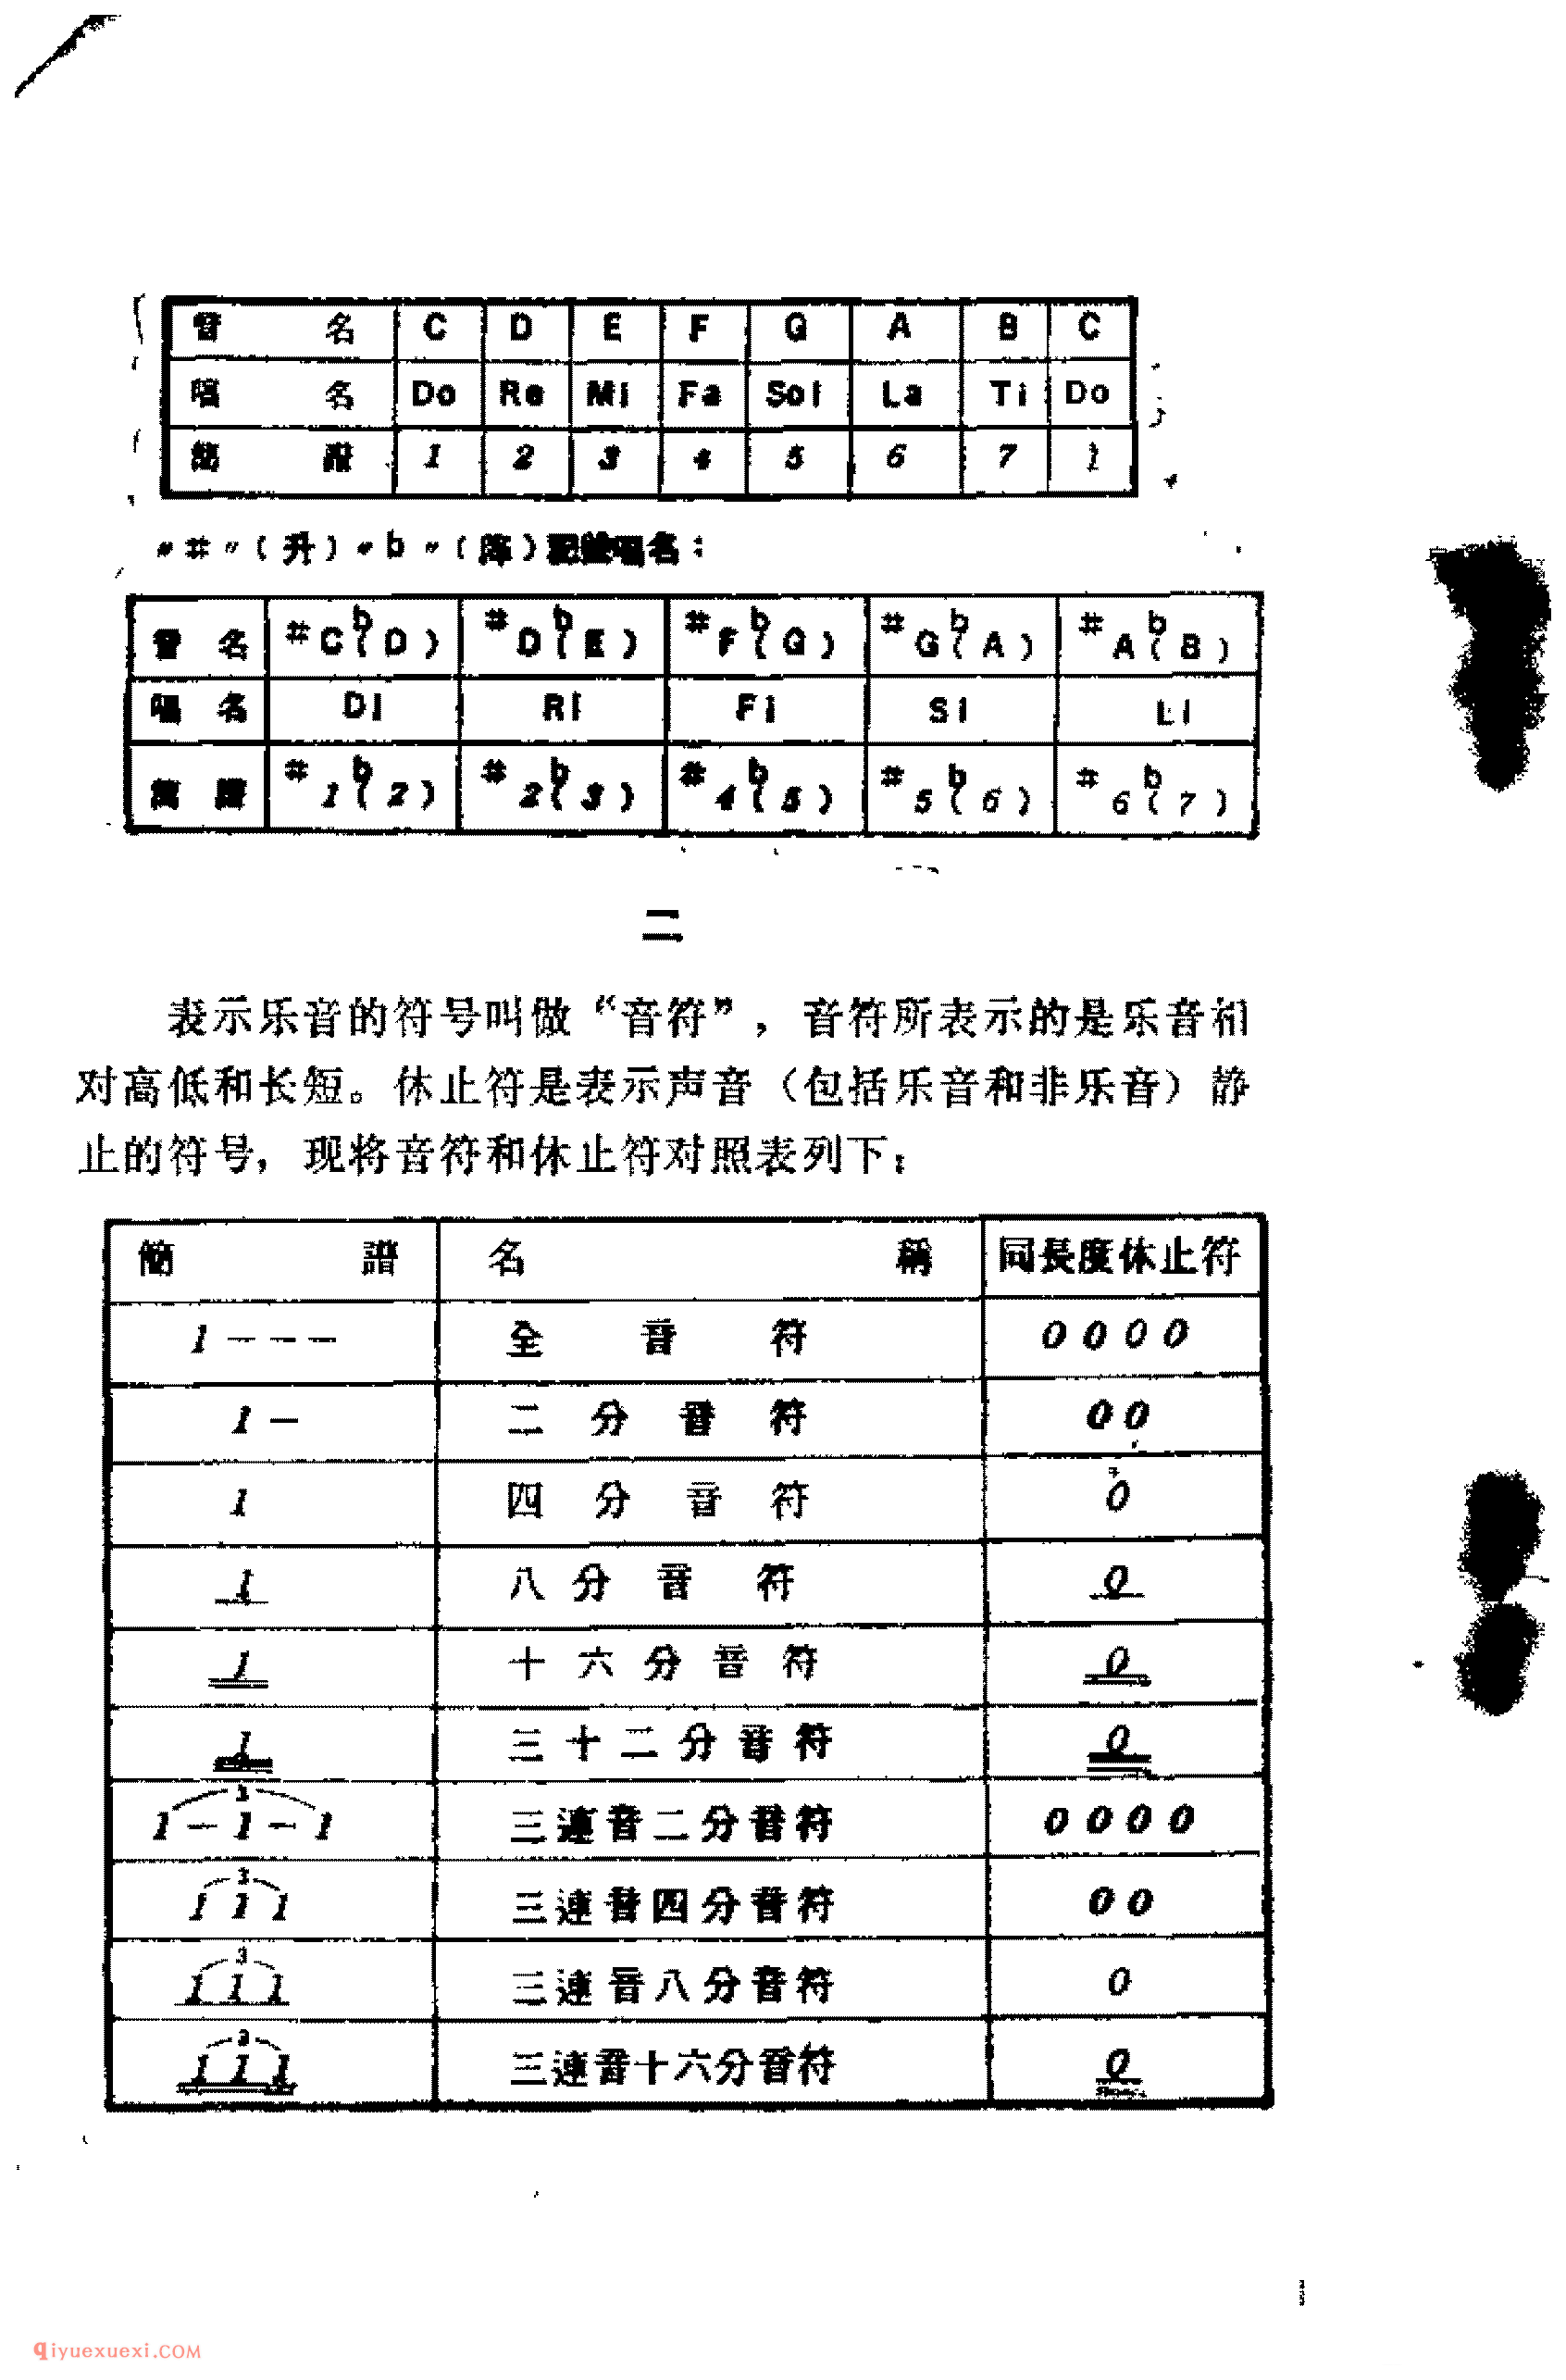 音名 C D E F G A B C
唱名 Do Re Mi Fa Sol La Ti Do
簡譜 1 2 3 4 5 6 7 1
"#"(升)"b"(降)記號唱名:
音名 #C(bD) #D(bE) #F(bG) #G(bA) #A(bB)
唱名 Di Ri Fi Si Li
簡譜 #1(b2) #2(b3) #4(b5) #5(b6) #6(b7)
二
表示乐音的符号叫做“音符”，音符所表示的是乐音相
对高低和长短。休止符是表示声音（包括乐音和非乐音）静
止的符号，现将音符和休止符对照表列下：
簡譜 名稱 同長度休止符
1 - - - 全音符 0 0 0 0
1 - 二分音符 0 0
1 四分音符 0
1 八分音符 0
1 十六分音符 0
1 三十二分音符 0
3
1 - 1 - 1 三連音二分音符 0 0 0 0
3
1 1 1 三連音四分音符 0 0
3
1 1 1 三連音八分音符 0
3
1 1 1 三連音十六分音符 0
qiyuexuexi.COM